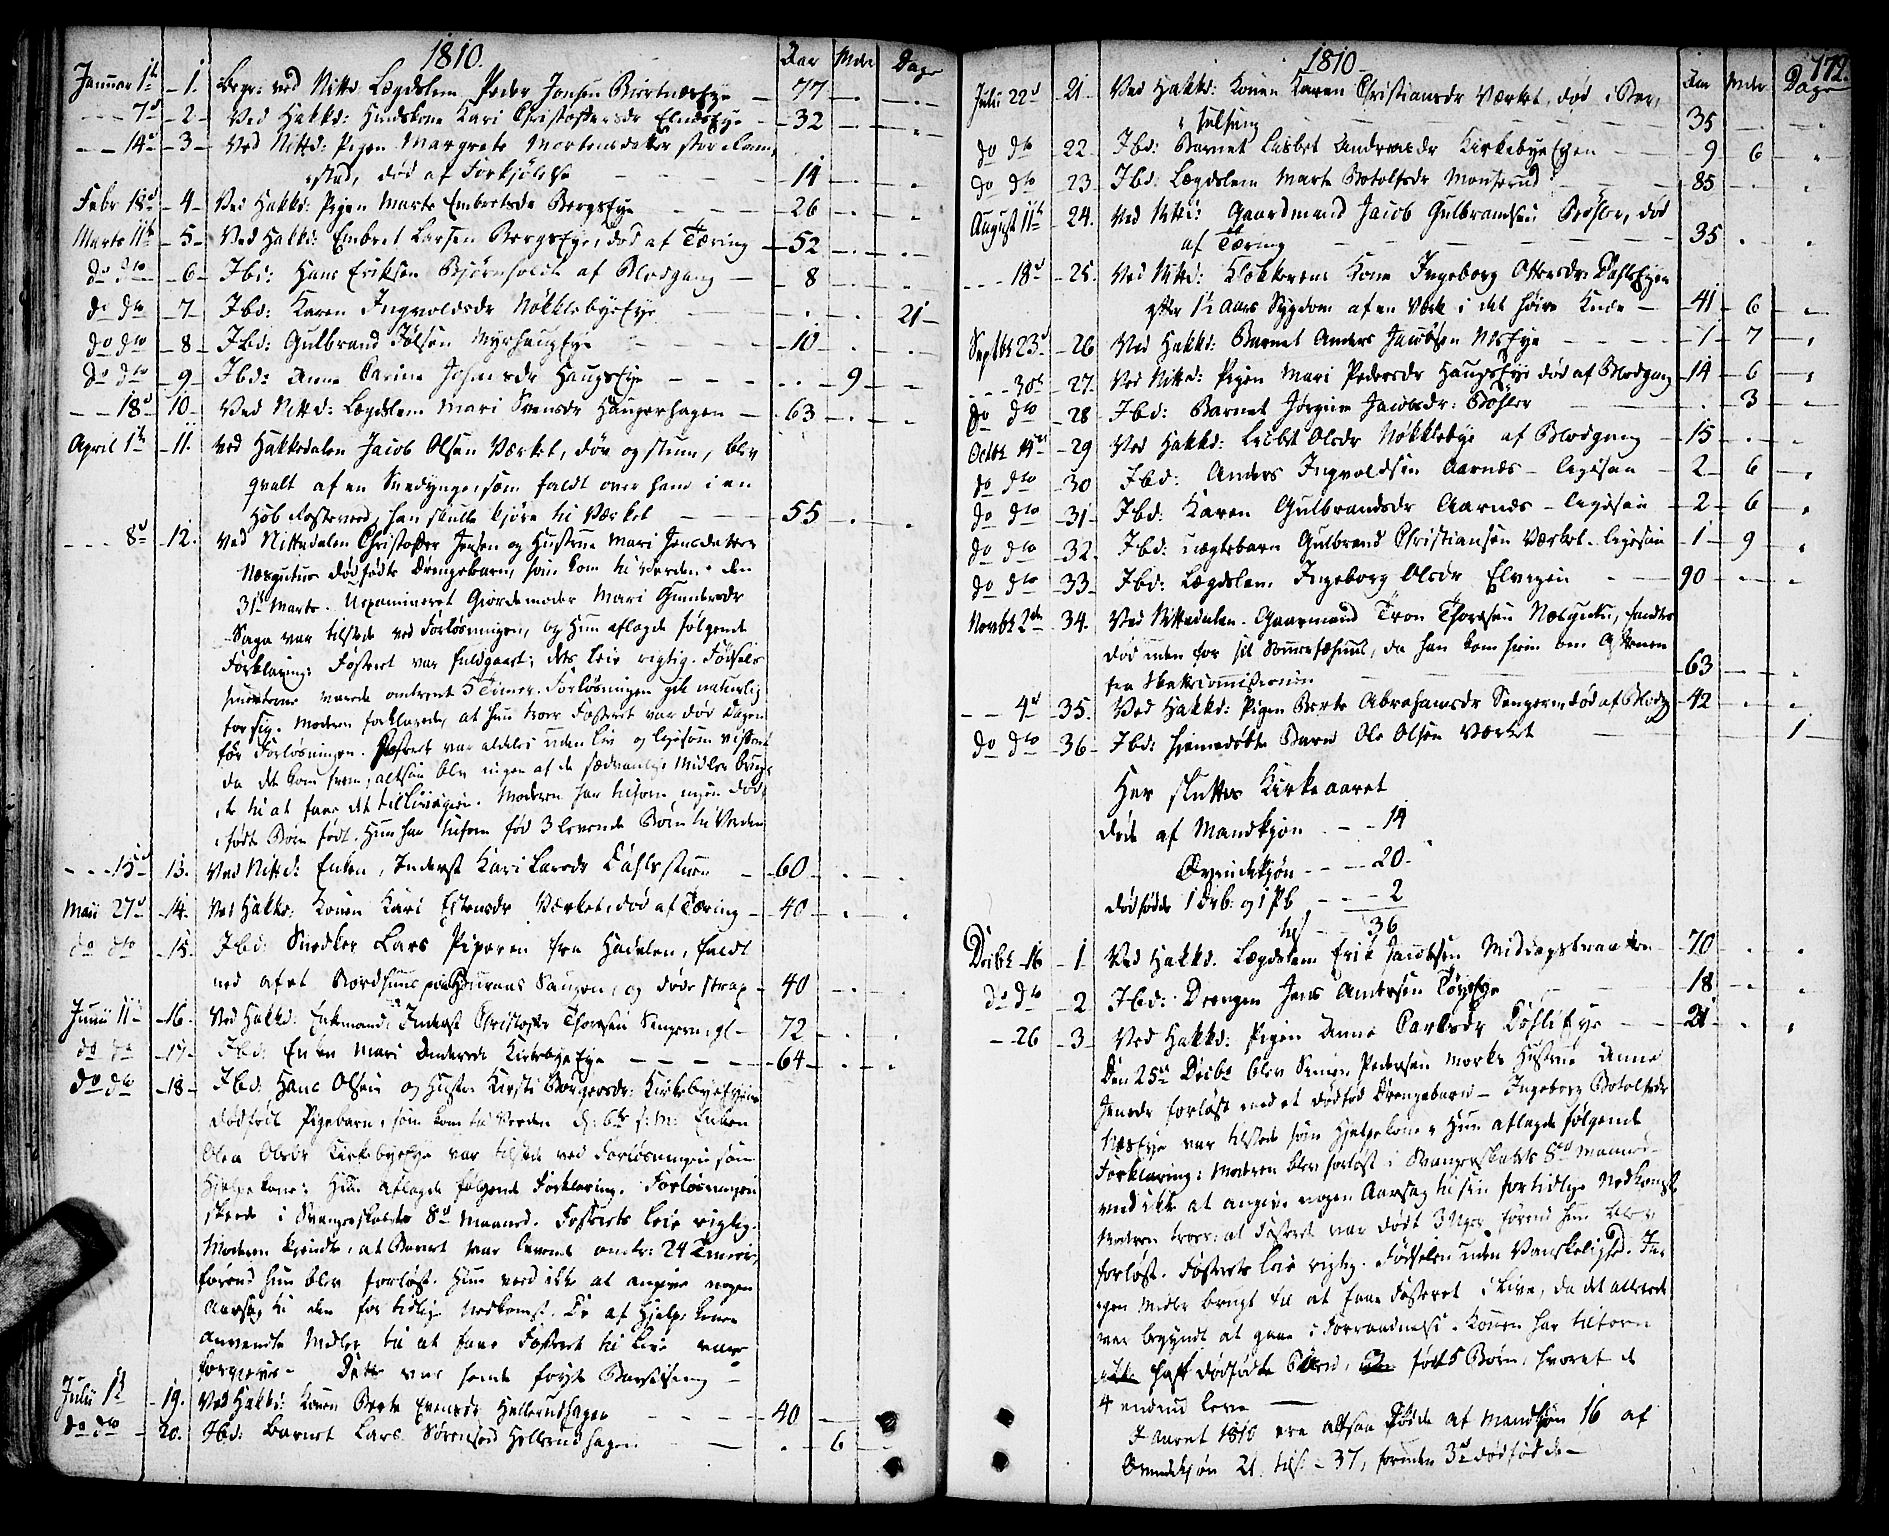 1810.
Aar Mdr Dage
Januar 1te 1. Begr: ved Nitte. Lægdslem Peder Jonsen BiertnæsEye 77
7de 2 Ved Hakkd: Huuskone Kari Christophersdr ElnæsEye 32
14de 3 Ved Nittd: Pigen Margrete Mortensdatter store
sted, død af Forkjølelse 14
Febr 18de 4 Ved Hakkd: Pigen Marte Embretsdr BergsEye 26
Marts 11te 5 Ved Hakkd: Embret Larsen BergsEye, død af Tæring 52
do dto 6 Ibd: Hans Eriksen Bjørnholdt af Blodgang 8
do dto 7 Ibd: Karen Ingvoldsdr NøkklebyeEye 21
do dto 8 Ibd: Gulbrand Jølsen MyrhaugEye 10
do dto 9 Ibd: Anne Carine Johnsdr HaugsEye 9
18de 10 Ved Nittd: Lægdslem Mari Svensdr Haugerhagen 63
April 1te 11. Ved Hakkedalen Jacob Olsen Værket, døv og stum, blev
qvalt af en Sneedynge, som faldt over ham i en
Hob Rosteved, han skulle kjøre til Værket 55
8de 12. Ved Nittedalen Christopher Jensen og Hustrue Mari Jensdatter
dødfødte Drengebarn, som kom til Verden den
31te Marts. Uexamineret Giordemoder Mari Gundersdr
Saga var tilstede ved Forløsningen, og Hun aflagde følgende
Forklaring: Fosteret var fuldgaaet; dets leie rigtig. Fødsels
smerterne varede omtrent 5 Timer. Forløsningen gik naturlig
for sig. Moderen forklarede, at hun troer Fosteret var død Dagen
før Forløsningen. Fosteret var aldeles uden liv og ligesom vissent
da det kom frem; altsaa blev ingen af de sædvanlige Midler brug-
te til at faae det tillive igien. Moderen har tilforn ingen død-
fødte Børn født. Hun har tilforn fød 3 levende Børn til Verden
15de 13. Ved Nittd: Enken, Inderst Kari Larsdr Dahlsstuen 60
Maii 27de 14. Ved Hakkd: Konen Kari Estensdr Værket, død af Tæring 40
do dto 15. Ibd: Snedker Lars Piperen fra Hadelen, faldt
ned af et Nordhuus paa Buraas Saugen, og døde strax 40
Junii 11te 16. Ved Hakkd: Enkemand, Inderst Christopher Thoresen Sengeren; gl 72
do do 17. Ibd: Enken Mari Andersdr KirkebyeEye 64
do dto 18 Ibd: Hans Olsen og Hustr Kirsti Børgersdr: KirkebyeEyens
dødfødt Pigebarn, som kom til Verden d: 6te s: M: Enken
Olea Olsdr KirkebyeEye var tilstede ved Forløsningen som
Hjelpekone; Hun aflagde følgende Forklaring. Forløsningen
skeede i Svangerskabets 8de Maaned. Fosterets leie rigtig.
Moderen kiendte, at Barnet var levende omtr: 24 Timer,
førend hun blev forløst. Hun veed ikke at angive nogen
Aarsag til den for tidlige Nedkomst. De af Hjelpekonen
anvendte Midler til at faae Fosteret til live vare
forgieves. Dette var hendes første Barselseng
Julii 1te 19. Ved Hakkd: Konen Berte Evensdr Hellerudhagen 40
do dto 20. Ibd: Barnet Lars Sørensen Hellerudhagen 6
172.
1810
Aar Mdr Dage
Julii 22de 21 Ved Hakkd: Konen Karen Christiansdr Værket, død i Bar-
selseng 35
do dto 22. Ibd: Barnet Lisbet Andreasdr KirkebyeEyen 9 6
do dto 23 Ibd: Lægdslem Marte Botolfsdr Monserud 85
August 11te 24. Ved Nittd: Gaardmand Jacob Gulbrandsen Bøhler, død
af Tæring 35
18de 25. Ved Nittd: Klokkerens Kone Ingeborg Ottersdr DahlsEyen
efter 1½ aars Sygdom af en Værk i det høire Knæe 41 6
Septbr 23de 26 Ved Hakkd: Barnet Anders Jacobsen NæsEye 1 7
30te 27. Ved Nittd: Pigen Mari Pedersdr HaugsEye død af Blodgang 14 6
do dto 28 Ibd: Barnet Jørgine Jacobsdr: Bøhler 3
Octbr 14de 29 Ved Hakkd: Lisbet Olsdr Nøkklebye af Blodgang 15
do dto 30 Ibd: Anders Ingvoldsen Aarnæs - ligesaa 2 6
do dto 31 Ibd: Karen Gulbrandsdr Aarnæs - ligesaa 2 6
do dto 32. Ibd: uægtebarn Gulbrand Christiansen Værket - ligesaa 1 9
do dto 33 Ibd: Lægdslem. Ingeborg Olsdr Elvegen 90
Novbr 2de 34. Ved Nittedalen. Gaarmand Tron Thoresen, fandtes
død uden for sit, da han kom hiem om Aftenen
fra Skatcommissionen 63
4de 35. Ved Hakkd: Pigen Berte Abrahamsdr Sengeren død af Blodg 42
do dto 36 Ibd: hjemmedøbte Barn Ole Olsen Værket 1
Her sluttes Kirkeaaret
døde af Mandkjøn 14
Qvindekjøn 20
dødfødde 1 Drb: og 1 Pb 2
tils 36
Decbr 16 1 Ved Hakkd. Lægdslem Erik Jacobsen Middagsbraaten 70
do do 2 Ibd: Drengen Jens Andersen TøyeEye 18
26 3 Ved Hakkd: Pigen Anne Carlsdr BøhlerEye 21
Den 25de Decbr blev Simen Pedersen Morks Hustrue Anne
Jensdr forløst med et dødfød Drengebarn. Ingeborg Botolfsdr
NæsEye var tilstede som Hjelpekone, Hun aflagde følgende
Forklaring: Moderen blev forløst i Svangerskabets 8de Maaned
veed ikke at angive nogen Aarsag til sin fortidlige Nedkomst
Moderen troer, at Fosteret var dødt 3 Uger førend hun blev
forløst. Fosterets leie rigtig. Fødselen uden Vanskelighed. In-
gen Midler brugt til at faae Fosteret i Live, da det allerede
var begyndt at gaae i Forraadnelse. Konen har tilforn
ikke haft dødfødte Børn, født 5 Børn, hvoraf de
4 endnu leve
I Aaret 1810 ere altsaa Døde af Mandkjøn 16 af
Qvindekjøn 21. tils. 37, foruden 3de dødfødde